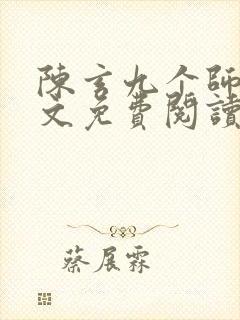 陳言九个師
文免費閱讀
蔡展霖